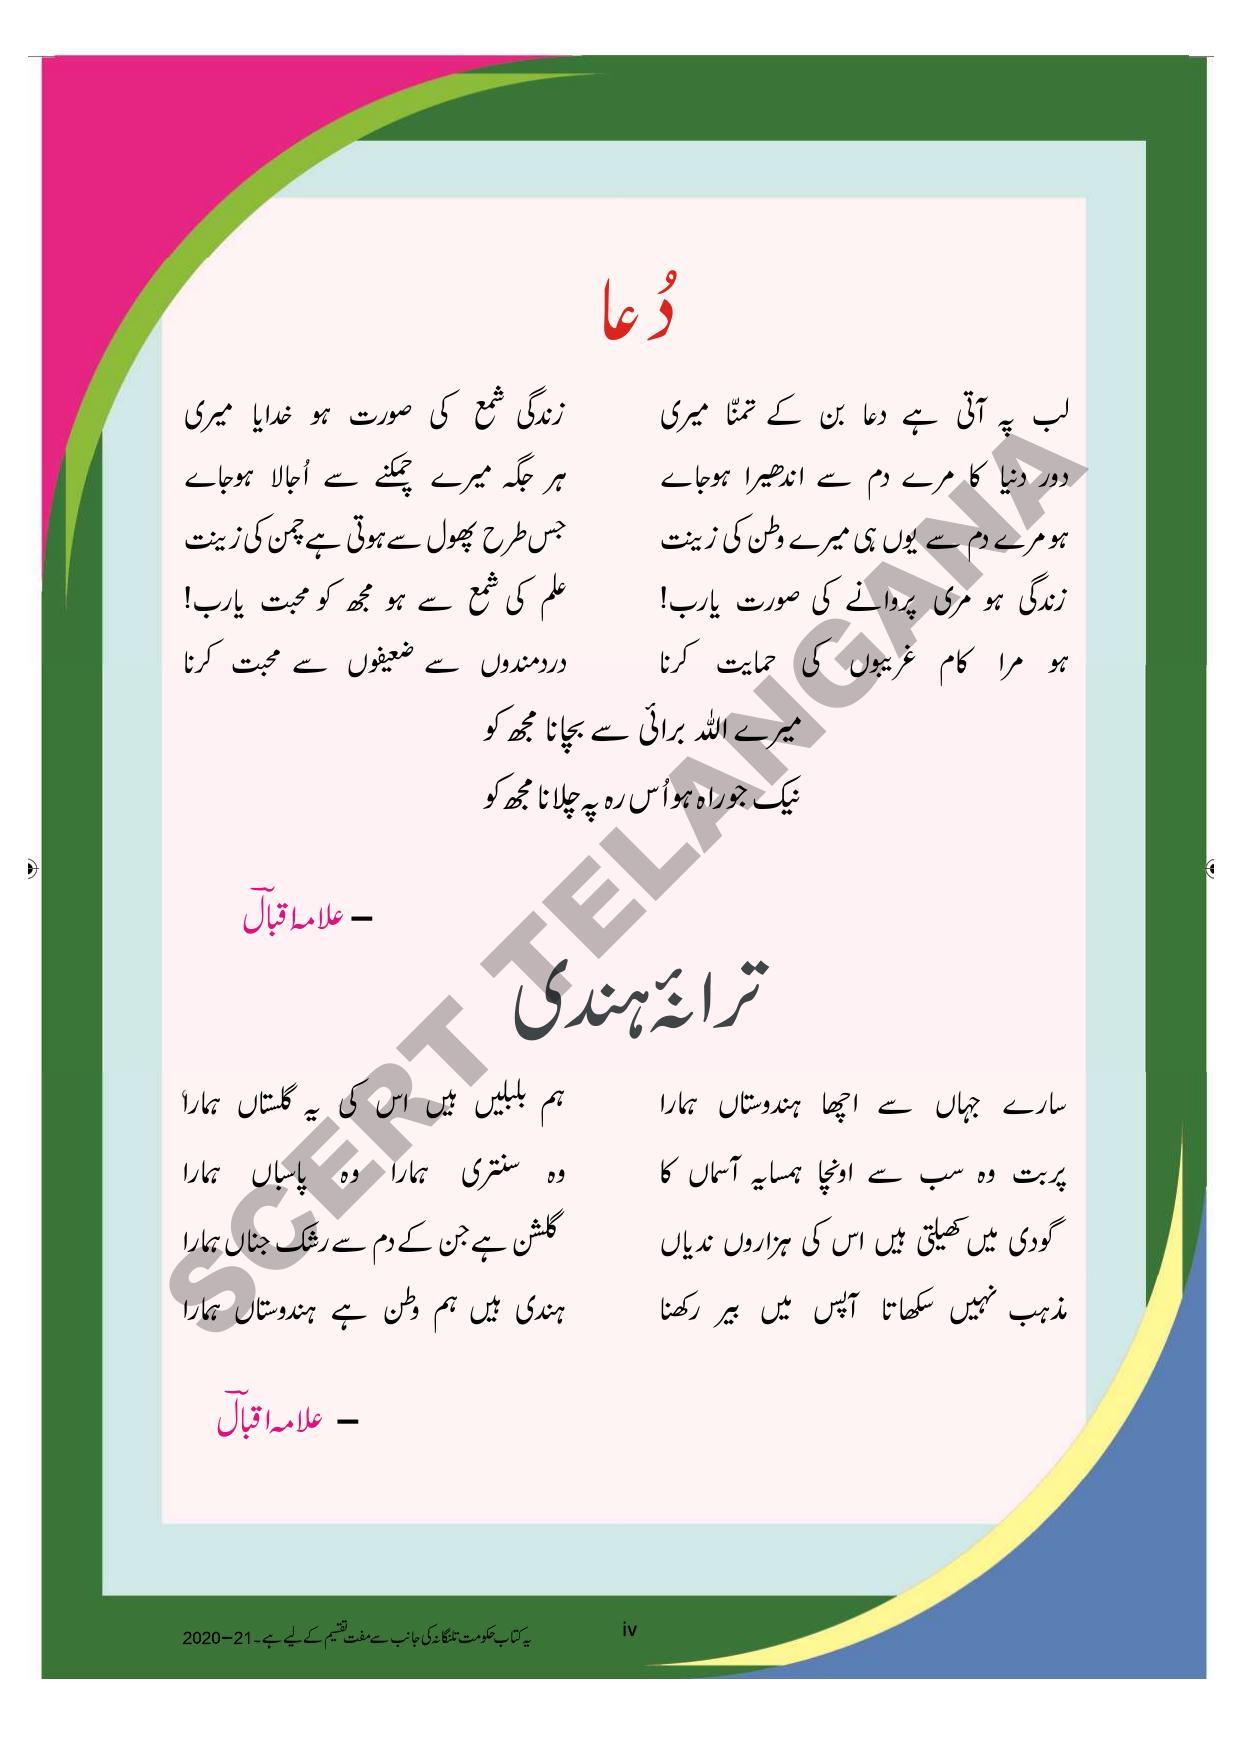 دُعا
لب پہ آتی ہے دعا بن کے تمنّا میری زندگی شمع کی صورت ہو خدایا میری
دور دنیا کا مرے دم سے اندھیرا ہوجاے ہر جگہ میرے چمکنے سے اُجالا ہوجاے
ہو مرے دم سے یوں ہی میرے وطن کی زینت جس طرح پھول سے ہوتی ہے چمن کی زینت
زندگی ہو مری پروانے کی صورت یارب! علم کی شمع سے ہو مجھ کو محبت یارب!
ہو مرا کام غریبوں کی حمایت کرنا دردمندوں سے ضعیفوں سے محبت کرنا
میرے اللہ برائی سے بچانا مجھ کو
نیک جو راہ ہو اُس رہ پہ چلانا مجھ کو
– علامہ اقبالؔ
ترانۂ ہندی
سارے جہاں سے اچھا ہندوستاں ہمارا ہم بلبلیں ہیں اس کی یہ گلستاں ہمارا
پربت وہ سب سے اونچا ہمسایہ آسماں کا وہ سنتری ہمارا وہ پاسباں ہمارا
گودی میں کھیلتی ہیں اس کی ہزاروں ندیاں گلشن ہے جن کے دم سے رشک جناں ہمارا
مذہب نہیں سکھاتا آپس میں بیر رکھنا ہندی ہیں ہم وطن ہے ہندوستاں ہمارا
– علامہ اقبالؔ
SCERT TELANGANA
iv
یہ کتاب حکومت تلنگانہ کی جانب سے مفت تقسیم کے لیے ہے۔ 2020–21